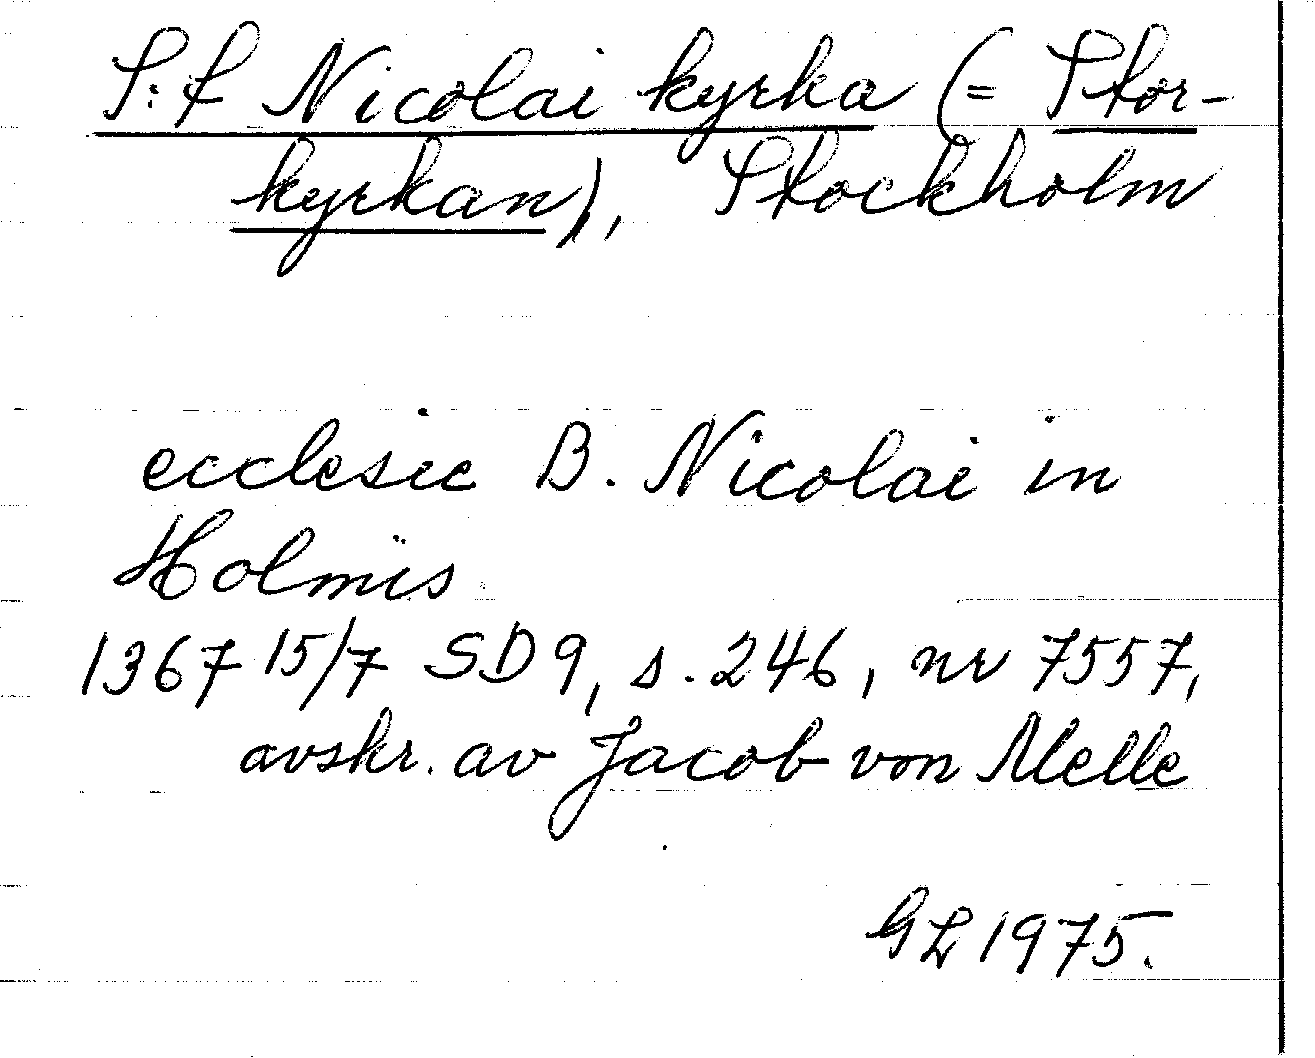 S:t Nicolai kyrka (= Stor-
kyrkan), Stockholm
ecclesie B. Nicolai in
Holmis
1367 15/7 SD 9, s. 246, nr 7557,
avskr. av Jacob von Melle
GL 1975.